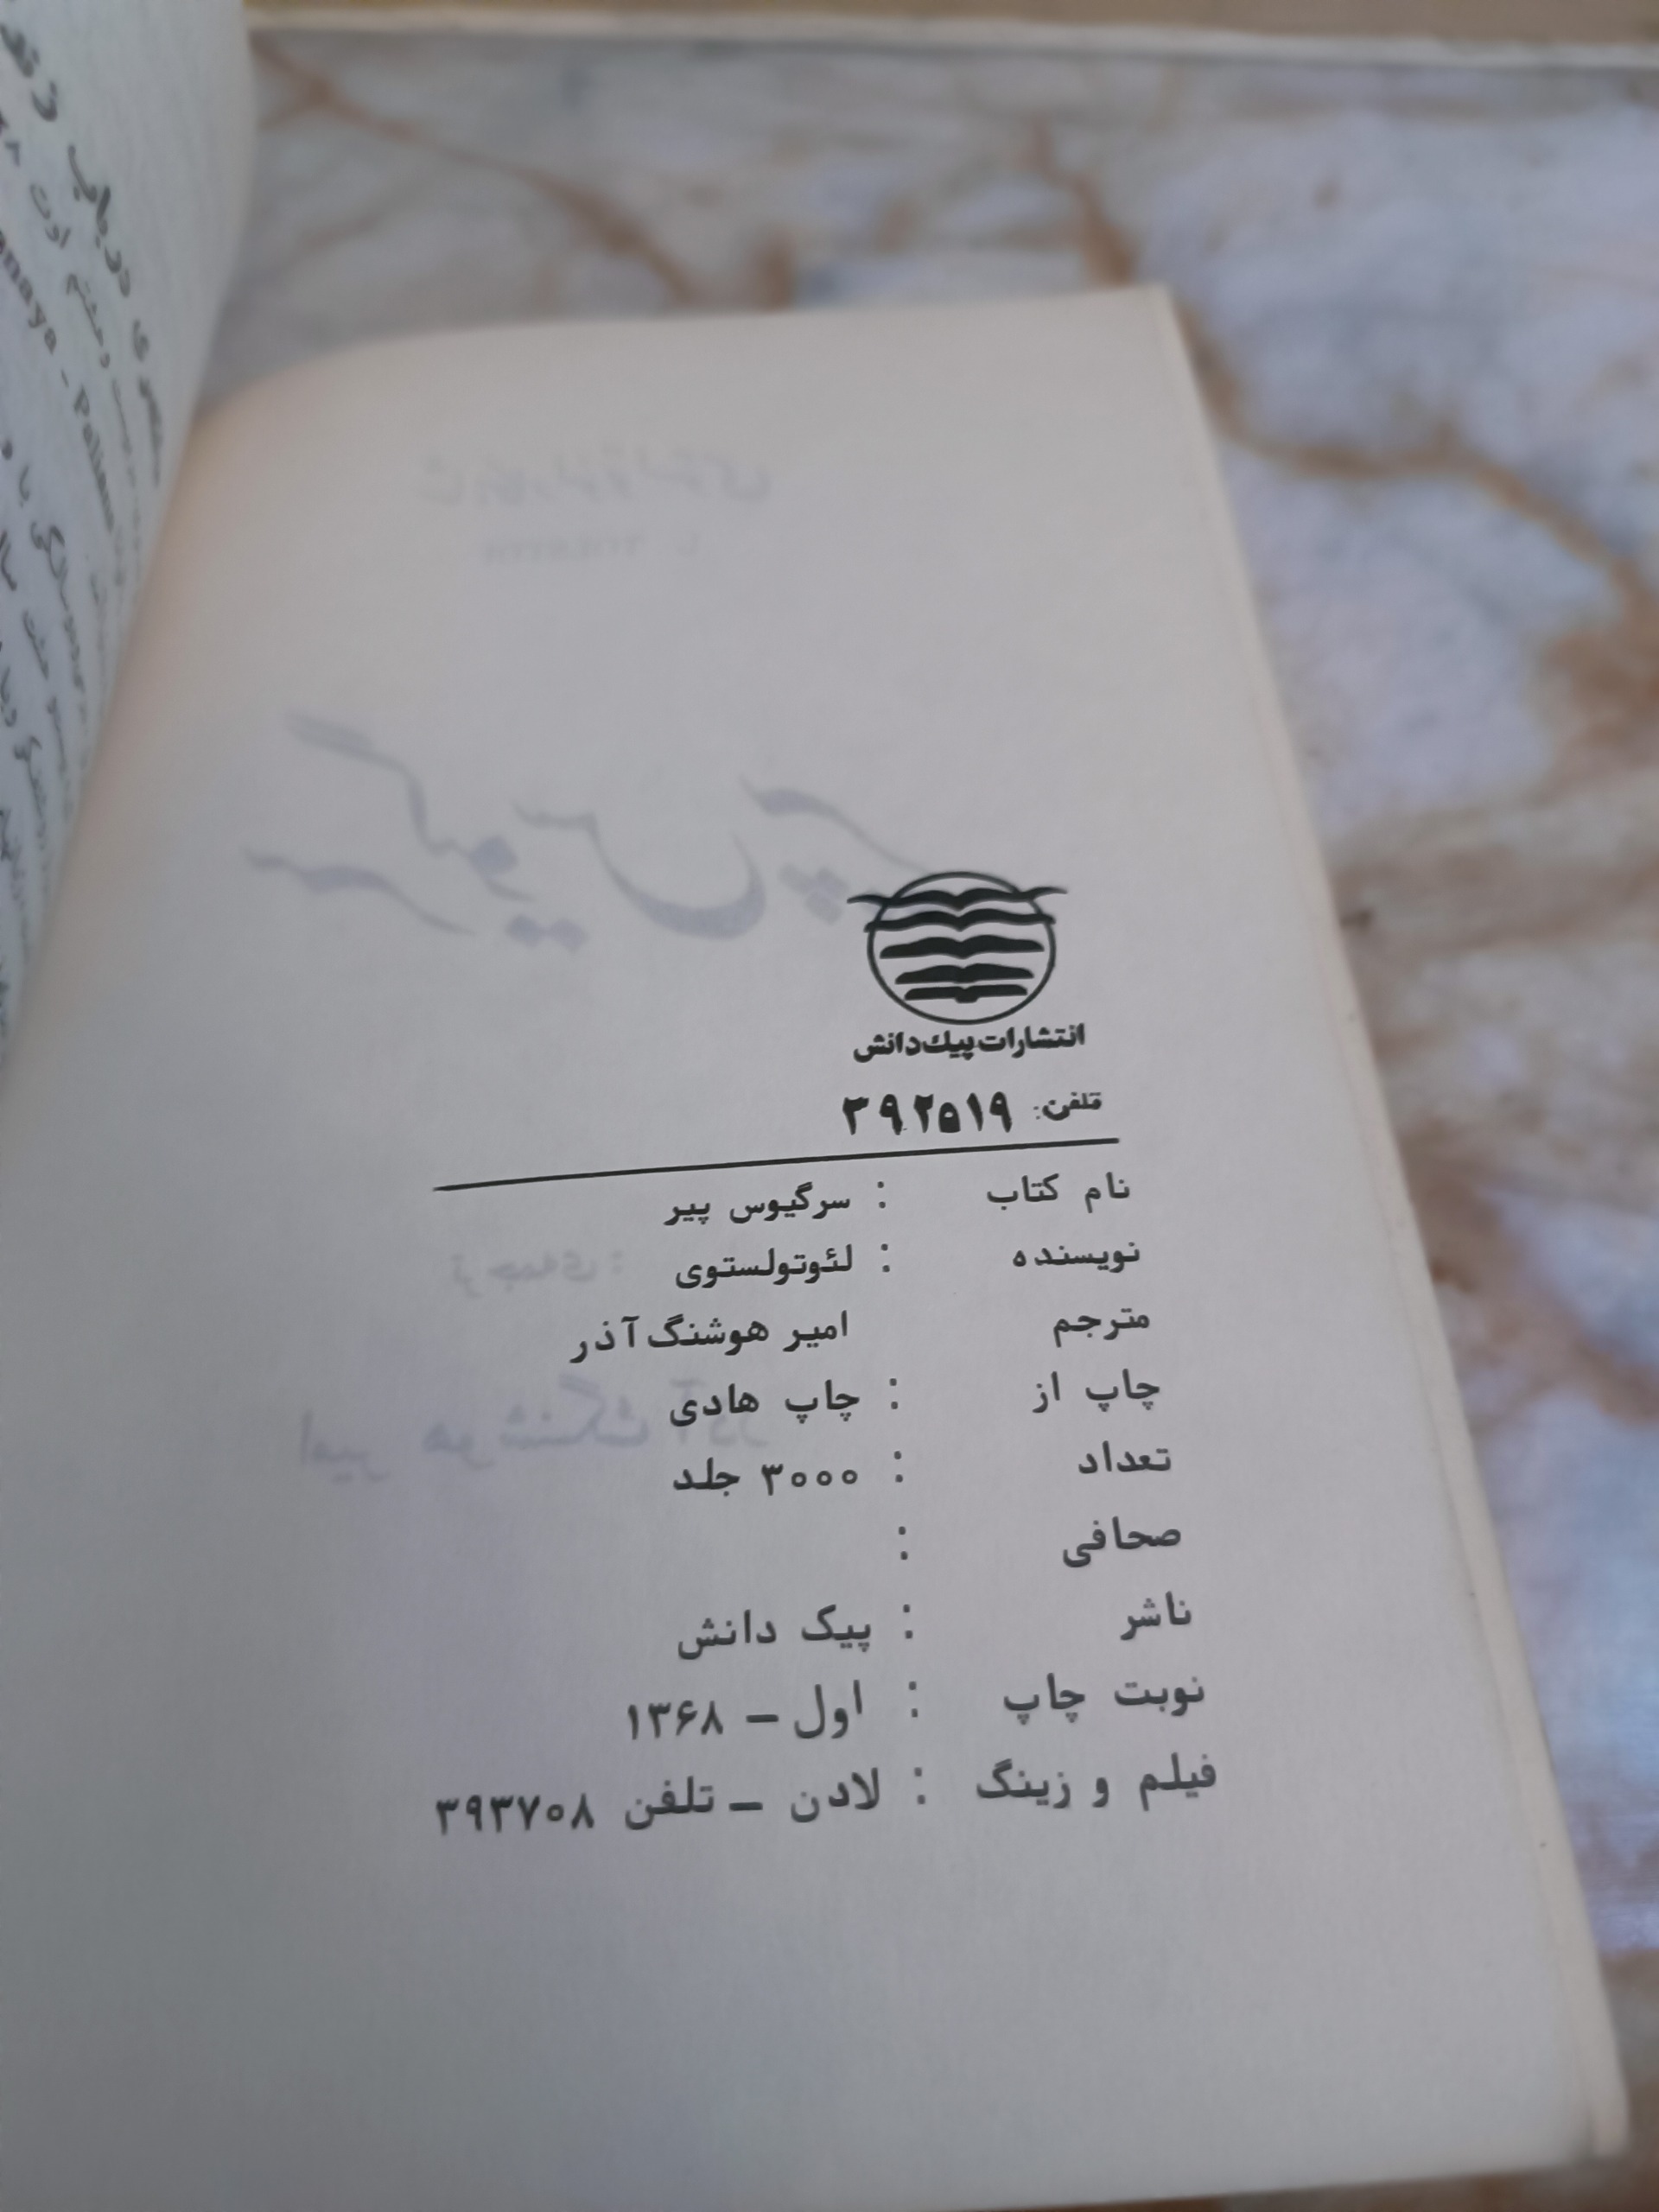 انتشارات پیك دانش
تلفن: ۳۹۲۵۱۹
نام کتاب : سرگیوس پیر
نویسنده : لئوتولستوی
مترجم امیر هوشنگ آذر
چاپ از : چاپ هادی
تعداد : ۳۰۰۰ جلد
صحافی :
ناشر : پیک دانش
نوبت چاپ : اول – ۱۳۶۸
فیلم و زینگ : لادن – تلفن ۳۹۳۷۰۸